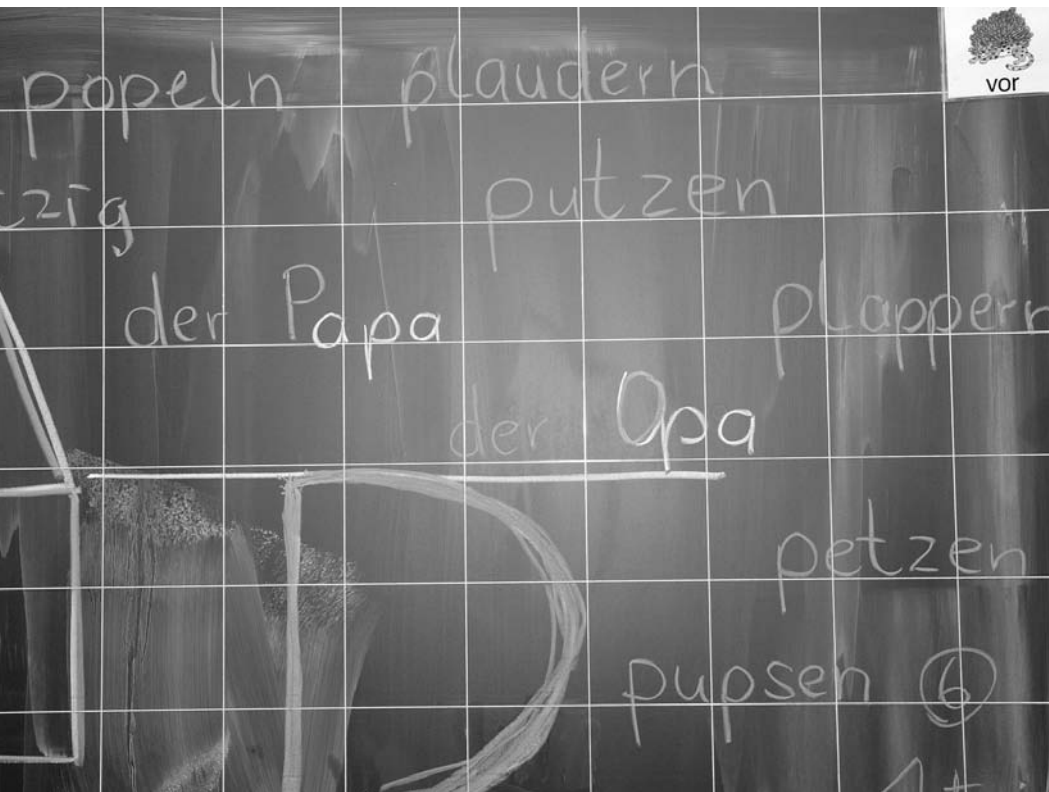 popeln plaudern
vor
tzig putzen
der Papa plappern
der Opa
P
petzen
pupsen 6